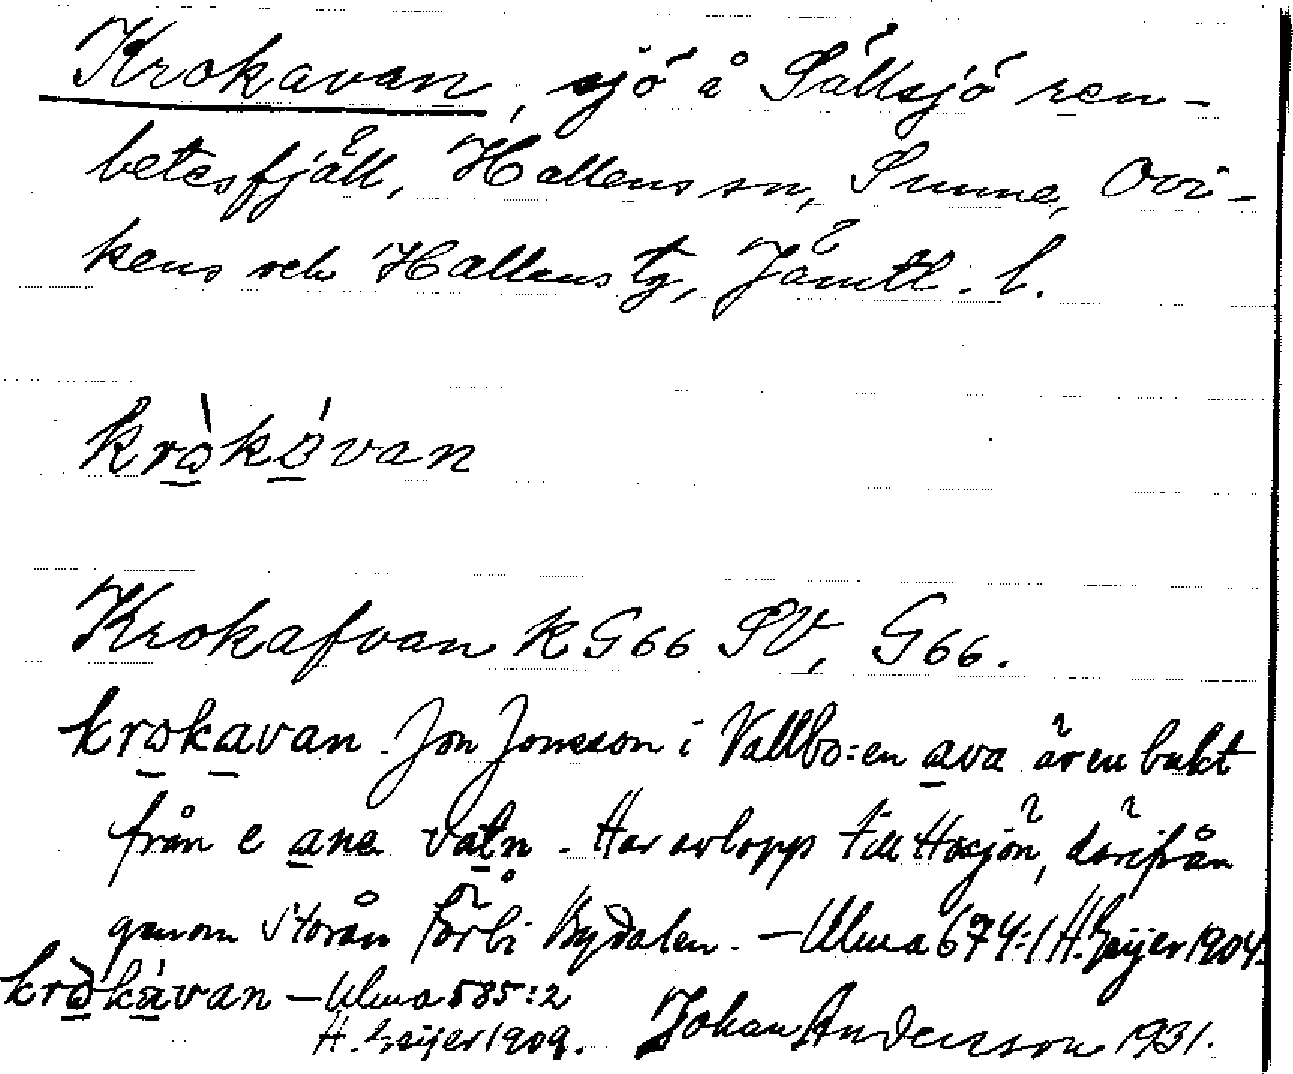 Krokavan, sjö å Sällsjö ren-
betesfjäll, Hallens sn, Sunne, Ovi-
kens och Hallens tg, Jämtl. l.
kròkávan
Krokafvan K G66 SV, G66.
krokavan. Jon Jonsson i Vallbo: en ava är en bukt
från e ane vatn. Har avlopp till Häsjön, därifrån
genom Storån förbi Bydalen. — Ulma 674:1 H. Geijer 1904.
kròkàvan — Ulma 585:2
H. Geijer 1909. Johan Andersson 1931.